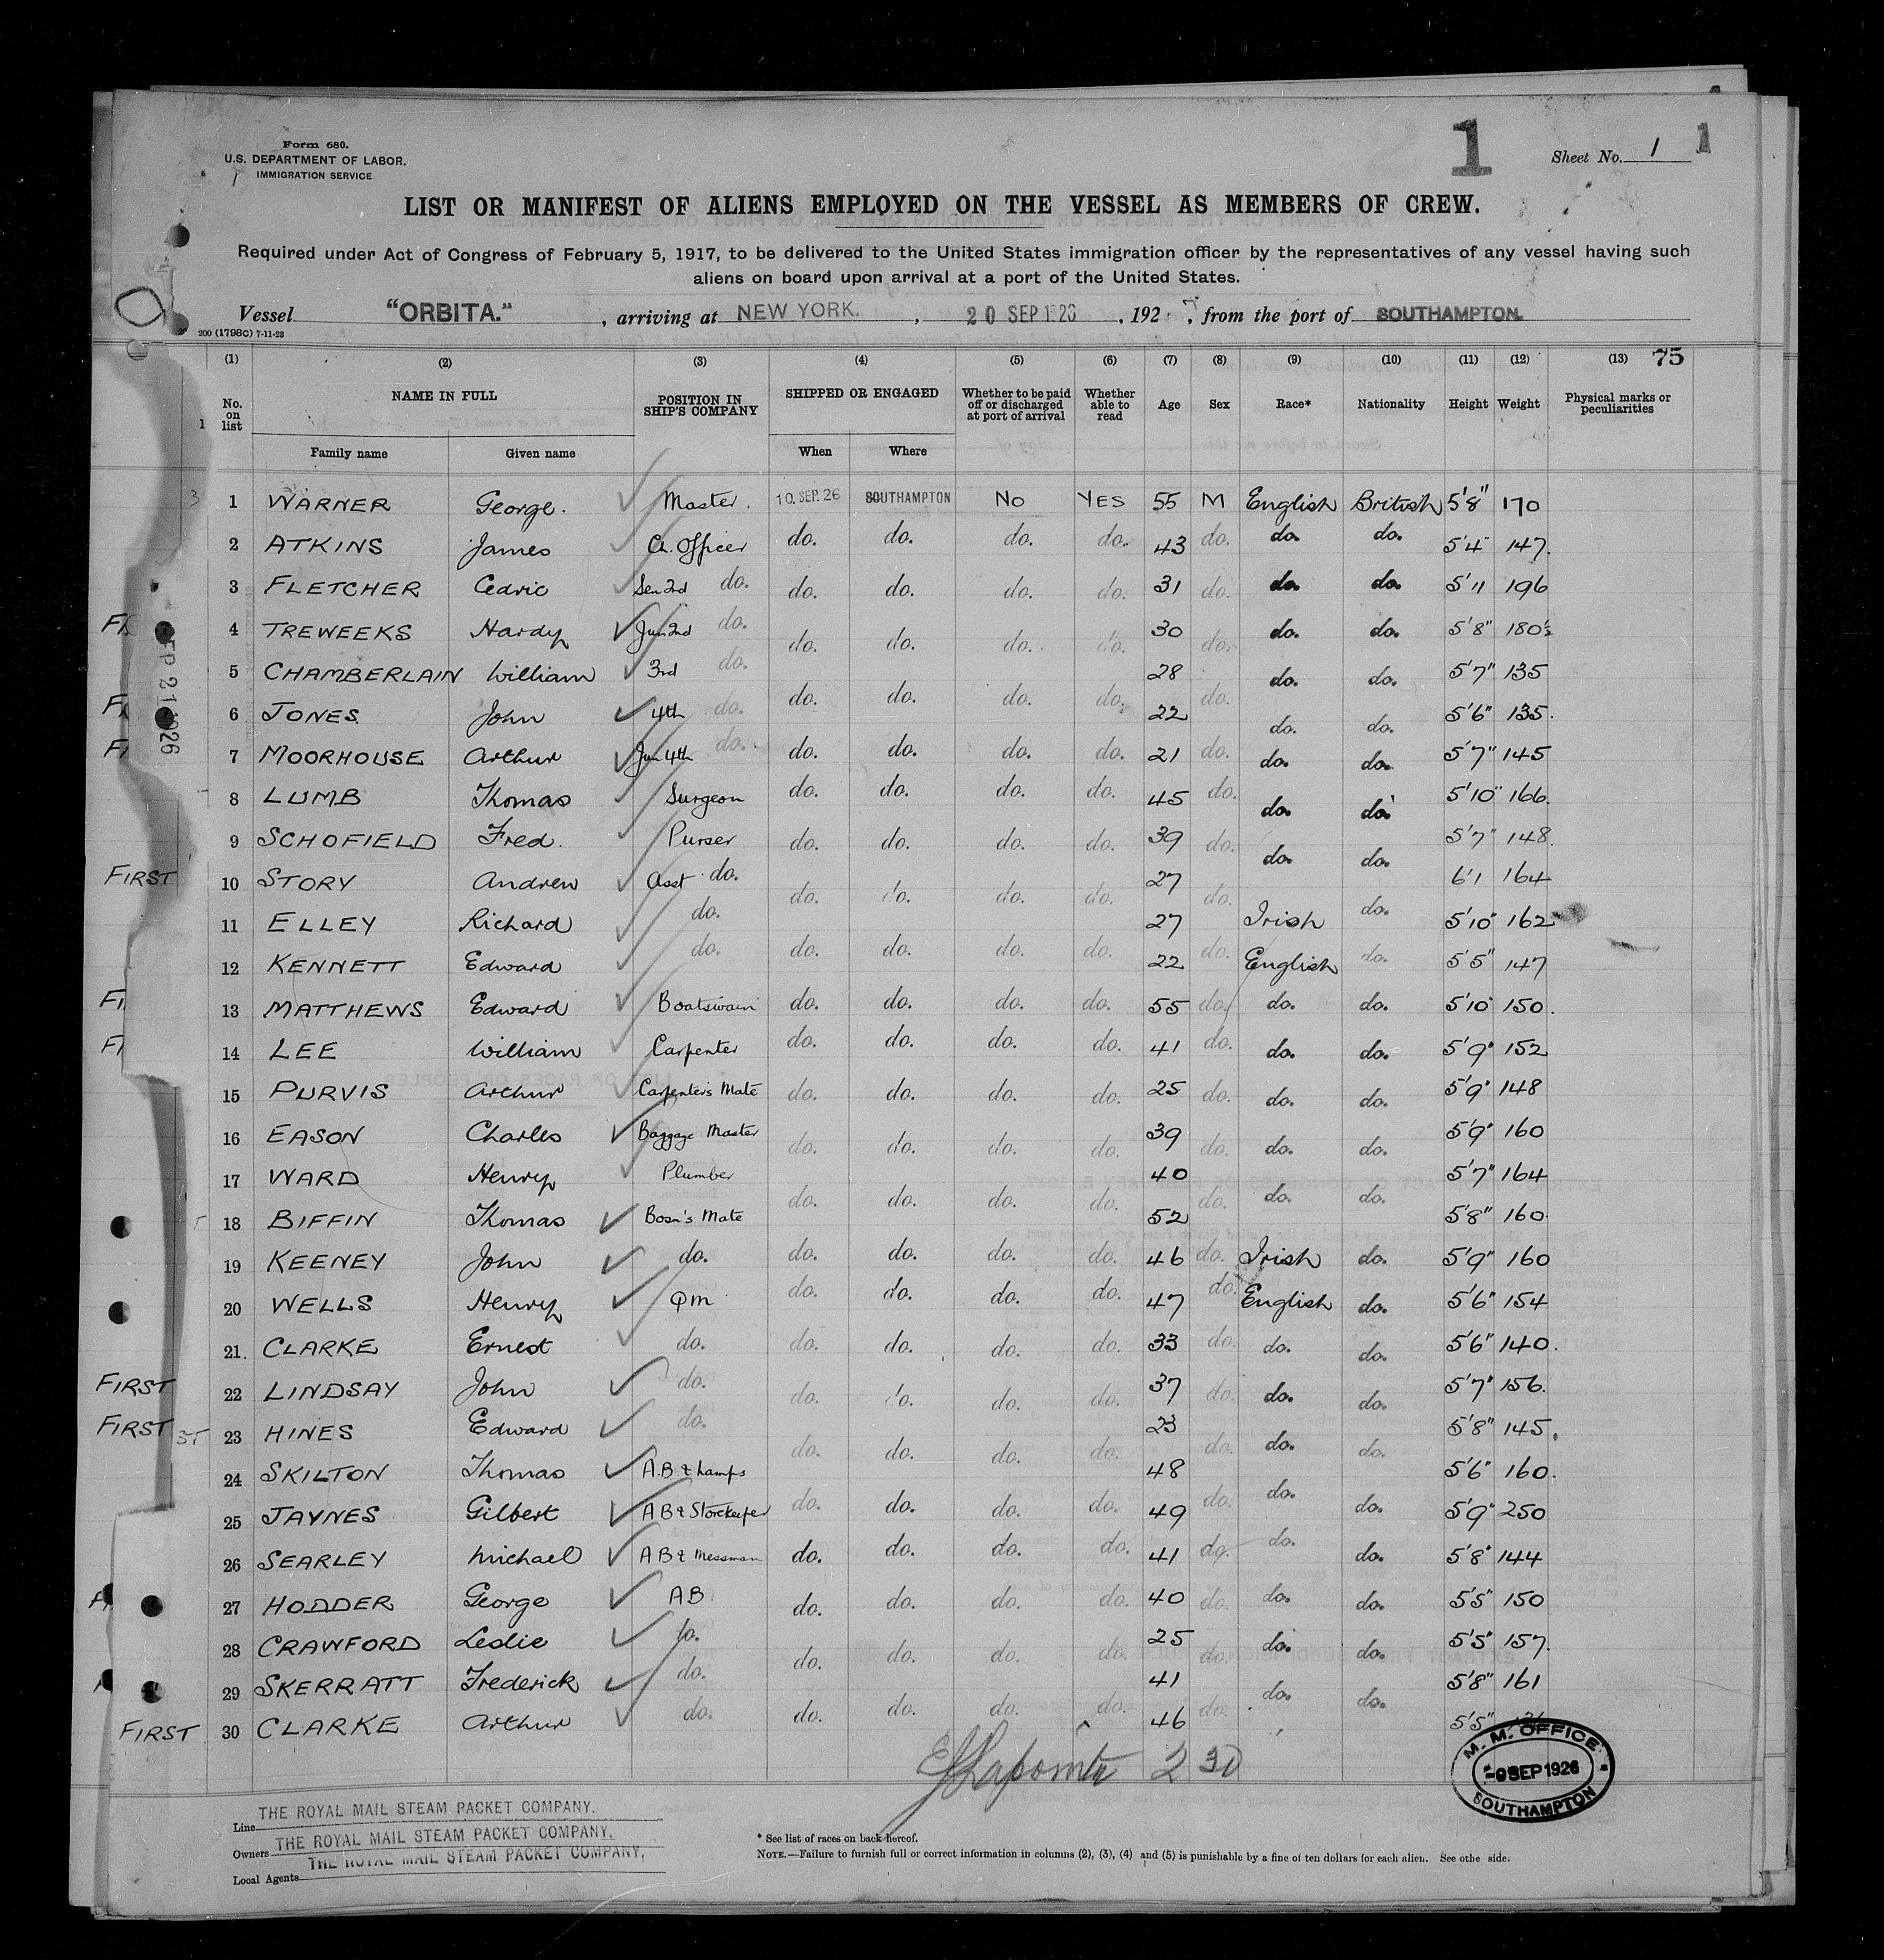 Form 680.
U.S. DEPARTMENT OF LABOR.
IMMIGRATION SERVICE
1
Sheet No. 1 1
LIST OR MANIFEST OF ALIENS EMPLOYED ON THE VESSEL AS MEMBERS OF CREW.
Required under Act of Congress of February 5, 1917, to be delivered to the United States immigration officer by the representatives of any vessel having such
aliens on board upon arrival at a port of the United States.
Vessel "ORBITA.", arriving at NEW YORK., 20 SEP 1926, 192 , from the port of SOUTHAMPTON.
200 (1798C) 7-11-23
(1) (2) (3) (4) (5) (6) (7) (8) (9) (10) (11) (12) (13) 75
No. on list NAME IN FULL POSITION IN SHIP'S COMPANY SHIPPED OR ENGAGED Whether to be paid off or discharged at port of arrival Whether able to read Age Sex Race* Nationality Height Weight Physical marks or peculiarities
Family name Given name When Where
1 WARNER George. Master. 10. SEP. 26 SOUTHAMPTON NO YES 55 M English British 5'8" 170
2 ATKINS James Ch. Officer do. do. do. do. 43 do. do. do. 5'4" 147.
3 FLETCHER Cedric Sen 2nd do. do. do. do. do. 31 do. do. do. 5'11 196
4 TREWEEKS Hardy Jun 2nd do. do. do. do. do. 30 do. do. do. 5'8" 180
5 CHAMBERLAIN William 3rd do. do. do. do. do. 28 do. do. do. 5'7" 135
6 JONES John 4th do. do. do. do. do. 22 do. do. do. 5'6" 135.
7 MOORHOUSE Arthur Jun 4th do. do. do. do. do. 21 do. do. do. 5'7" 145
8 LUMB Thomas Surgeon do. do. do. do. 45 do. do. do. 5'10" 166.
9 SCHOFIELD Fred. Purser do. do. do. do. 39 do. do. do. 5'7" 148.
FIRST 10 STORY Andrew Asst do. do. do. do. do. 27 do. do. do. 6'1 164
11 ELLEY Richard do. 27 Irish 5'10" 162
12 KENNETT Edward do. do. do. do. do. 22 do. English do. 5'5" 147
13 MATTHEWS Edward Boatswain do. do. do. do. 55 do. do. do. 5'10" 150.
14 LEE William Carpenter do. do. do. do. 41 do. do. do. 5'9" 152
15 PURVIS Arthur Carpenter's Mate do. do. do. do. 25 do. do. do. 5'9" 148
16 EASON Charles Baggage Master do. do. do. do. 39 do. do. do. 5'9" 160
17 WARD Henry Plumber 40 5'7" 164
18 BIFFIN Thomas Bosn's Mate do. do. do. do. 52 do. do. do. 5'8" 160
19 KEENEY John do. do. do. do. do. 46 do. Irish do. 5'9" 160
20 WELLS Henry QM do. do. do. do. 47 do. English do. 5'6" 154
21. CLARKE Ernest do. do. do. do. do. 33 do. do. do. 5'6" 140.
FIRST 22 LINDSAY John do. do. do. do. do. 37 do. do. do. 5'7" 156.
FIRST ST 23 HINES Edward do. 23 5'8" 145.
24 SKILTON Thomas A.B & Lamps do. do. do. do. 48 do. do. do. 5'6" 160.
25 JAYNES Gilbert AB & Storekeeper do. do. do. do. 49 do. do. do. 5'9" 250
26 SEARLEY Michael AB & Messman do. do. do. do. 41 do. do. do. 5'8" 144
27 HODDER George AB. do. do. do. do. 40 do. do. do. 5'5" 150
28 CRAWFORD Leslie do. do. do. do. do. 25 do. do. do. 5'5" 157.
29 SKERRATT Frederick do. 41 do. do. 5'8" 161
FIRST 30 CLARKE Arthur do. do. do. do. do. 46 do. 5'5"
2 30
M. M. OFFICE
-9 SEP 1926
SOUTHAMPTON
Line THE ROYAL MAIL STEAM PACKET COMPANY.
Owners THE ROYAL MAIL STEAM PACKET COMPANY.
Local Agents THE ROYAL MAIL STEAM PACKET COMPANY,
* See list of races on back hereof.
NOTE.—Failure to furnish full or correct information in columns (2), (3), (4) and (5) is punishable by a fine of ten dollars for each alien. See othe side.